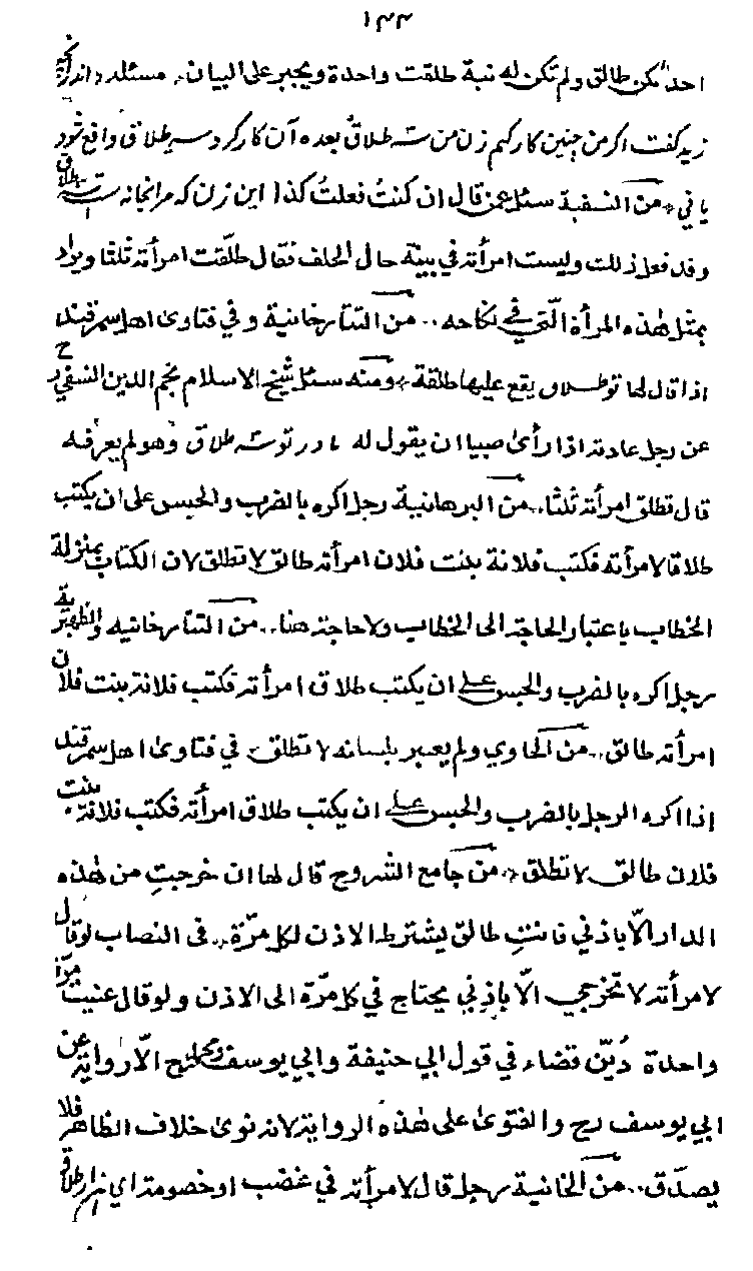 ١٣٣
احد ٮكن طالق ولم تكن له نية طلقت واحدة ويجبر على البيان ۞ مسئله
زيد كفت اكر من چنين كار كنم زن من سه طلاق بعده آن كار كرد سه طلاق واقع شود
يا ني ۞ من النسفية سئل عمن قال ان كنتُ فعلتُ كذا اين زن كه مرا بخانه ست بسه طلاق
وقد فعل ذلك وليست امرأته في بيته حال الحلف فقال طلّقت امرأته ثلثا ويراد
بمثل هٰذه المرأة الّتي في نكاحه ۞ من التتارخانية وفي فتاوى اهل سمرقند
اذا قال لها تو طلاق يقع عليها طلقة ۞ ومنه سئل شيخ الاسلام نجم الدين النسفي رح
عن رجل عادته اذا رأى صبيا ان يقول له مادر تو سه طلاق وهو لم يعرفه
قال تطلق امرأته ثلثا ۞ من البرهانية رجل اكره بالضرب والحبس على ان يكتب
طلاقا لامرأته فكتب فلانة بنت فلان امرأته طالق لا تطلق لان الكتاب بمنزلة
الخطاب باعتبار الحاجة الى الخطاب ولا حاجة هنا ۞ من التتارخانيه والظهيرية
رجل اكره بالضرب والحبس على ان يكتب طلاق امرأته فكتب فلانة بنت فلان
امرأته طالق ۞ من الحاوي ولم يعبر بلسانه لا تطلق في فتاوى اهل سمرقند
اذا اكره الرجل بالضرب والحبس على ان يكتب طلاق امرأته فكتب فلانة بنت
فلان طالق لا تطلق ۞ من جامع الشروح قال لها ان خرجتِ من هٰذه
الدار الّا باذني فانتِ طالق يشترط الاذن لكل مرّة ۞ فى النصاب لو قال
لامرأته لا تخرجي الّا باذني يحتاج في كل مرّة الى الاذن ولو قال عنيت مرّة
واحدة دُيّن قضاء في قول ابي حنيفة وابي يوسف ومحمد رح الّا رواية عن
ابي يوسف رح والفتوى على هٰذه الرواية لانه نوى خلاف الظاهر فلا
يصدّق ۞ من الخانية رجل قال لامرأته في غضب او خصومة اي هزار طلاق